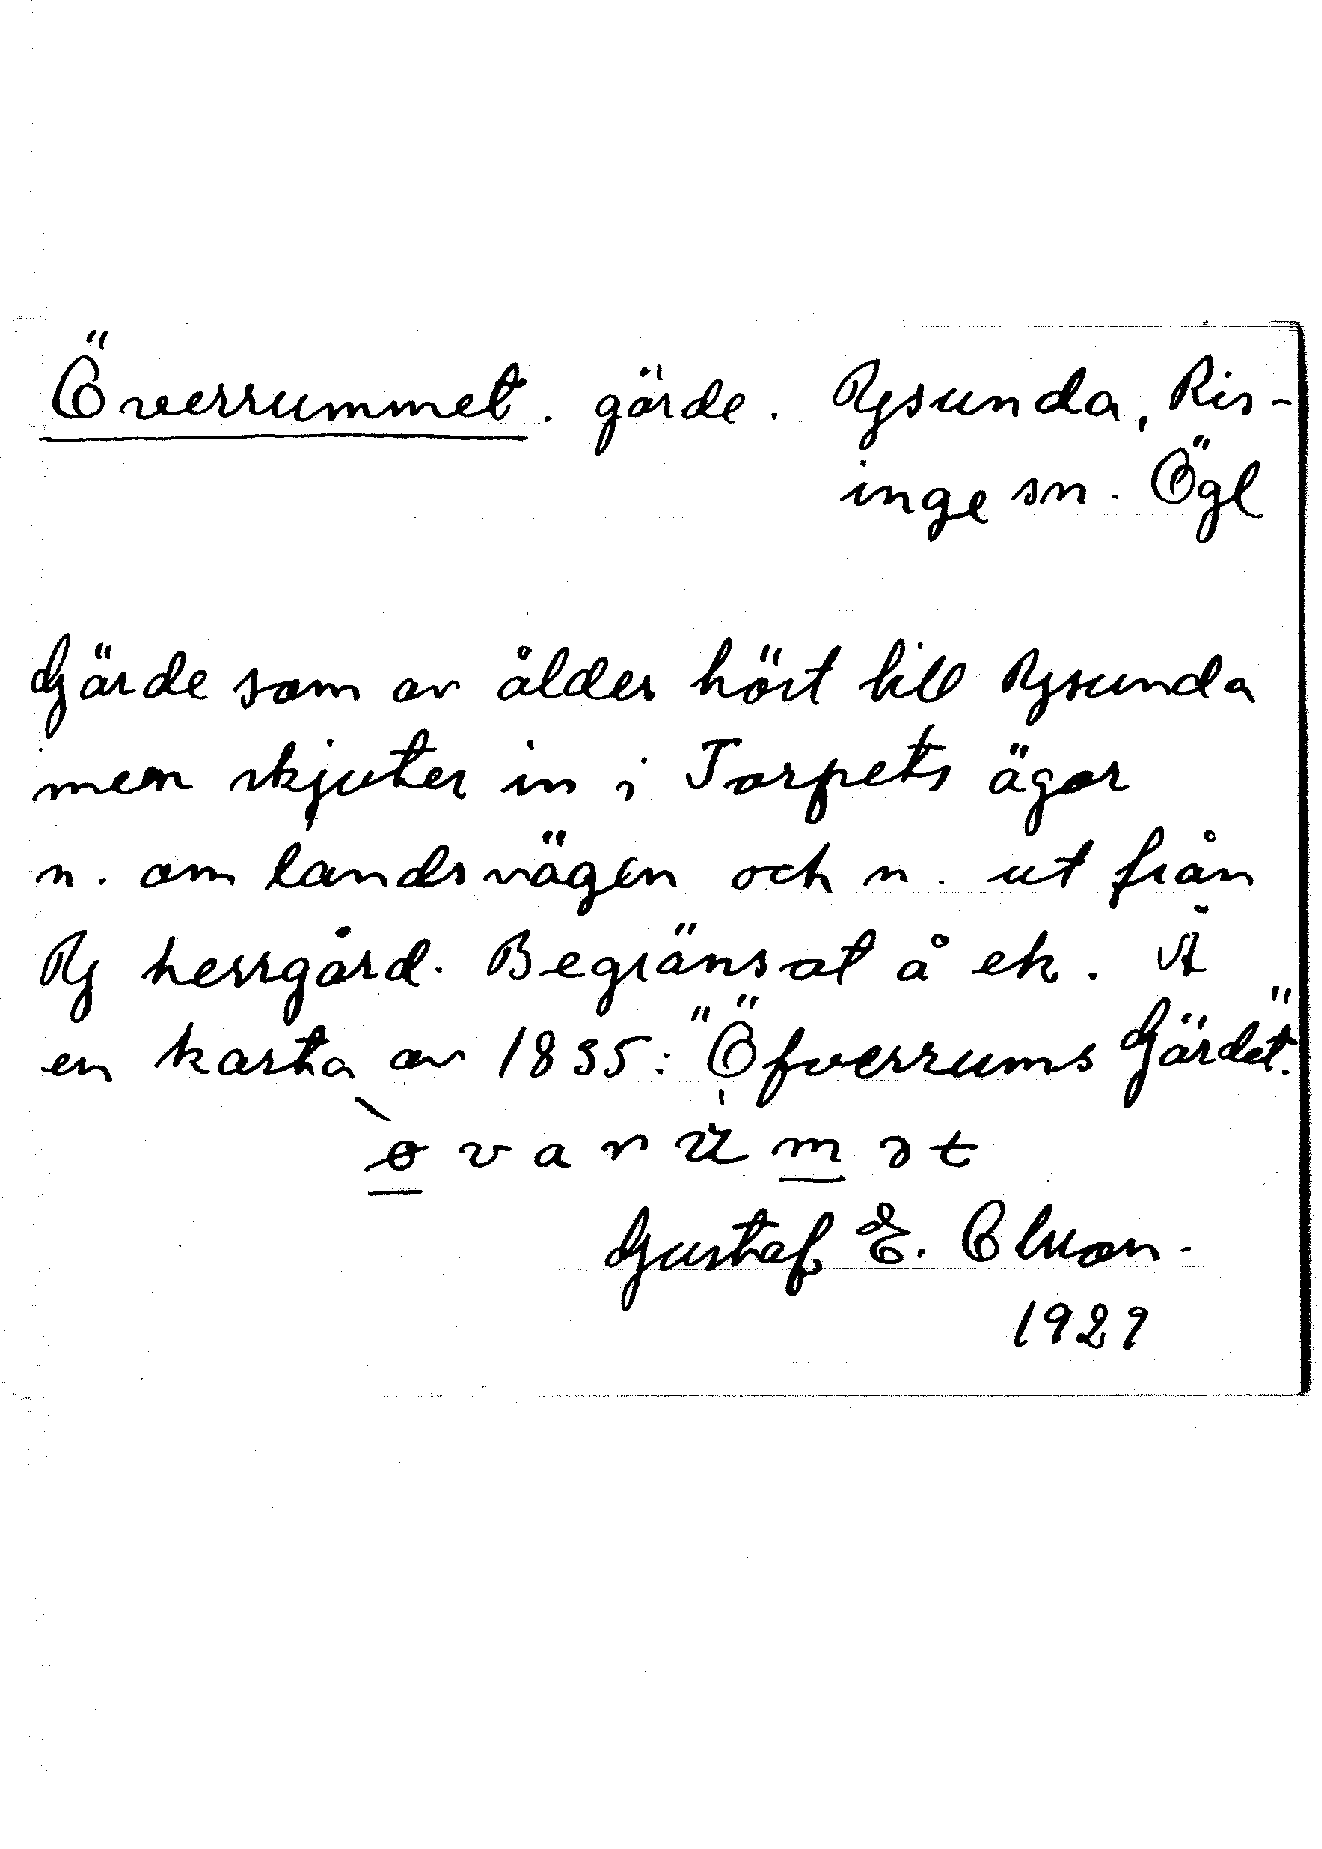 Överrummet. gärde. Rysunda, Ris-
inge sn. Ögl
Gärde som av ålder hört till Rysunda
men skjuter in i Torpets ägor
n. om landsvägen och n. ut från
Ry herrgård. Begränsat å ek. Å
en karta av 1835: "Öfverrums Gärdet".
Gustaf E. Olsson.
1929